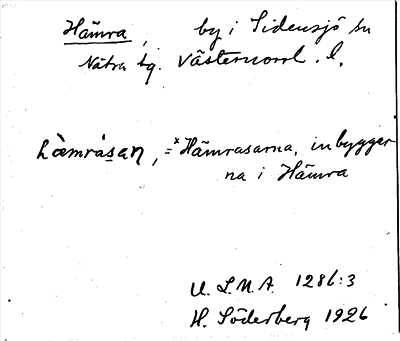 Hämra, by i Sidensjö sn
Nätra tg. Västernorrl. l.
hæ̀mràsan, =*Hämrasarna, inbyggar
na i Hämra
U. L. M. A. 1286:3
H. Söderberg 1926